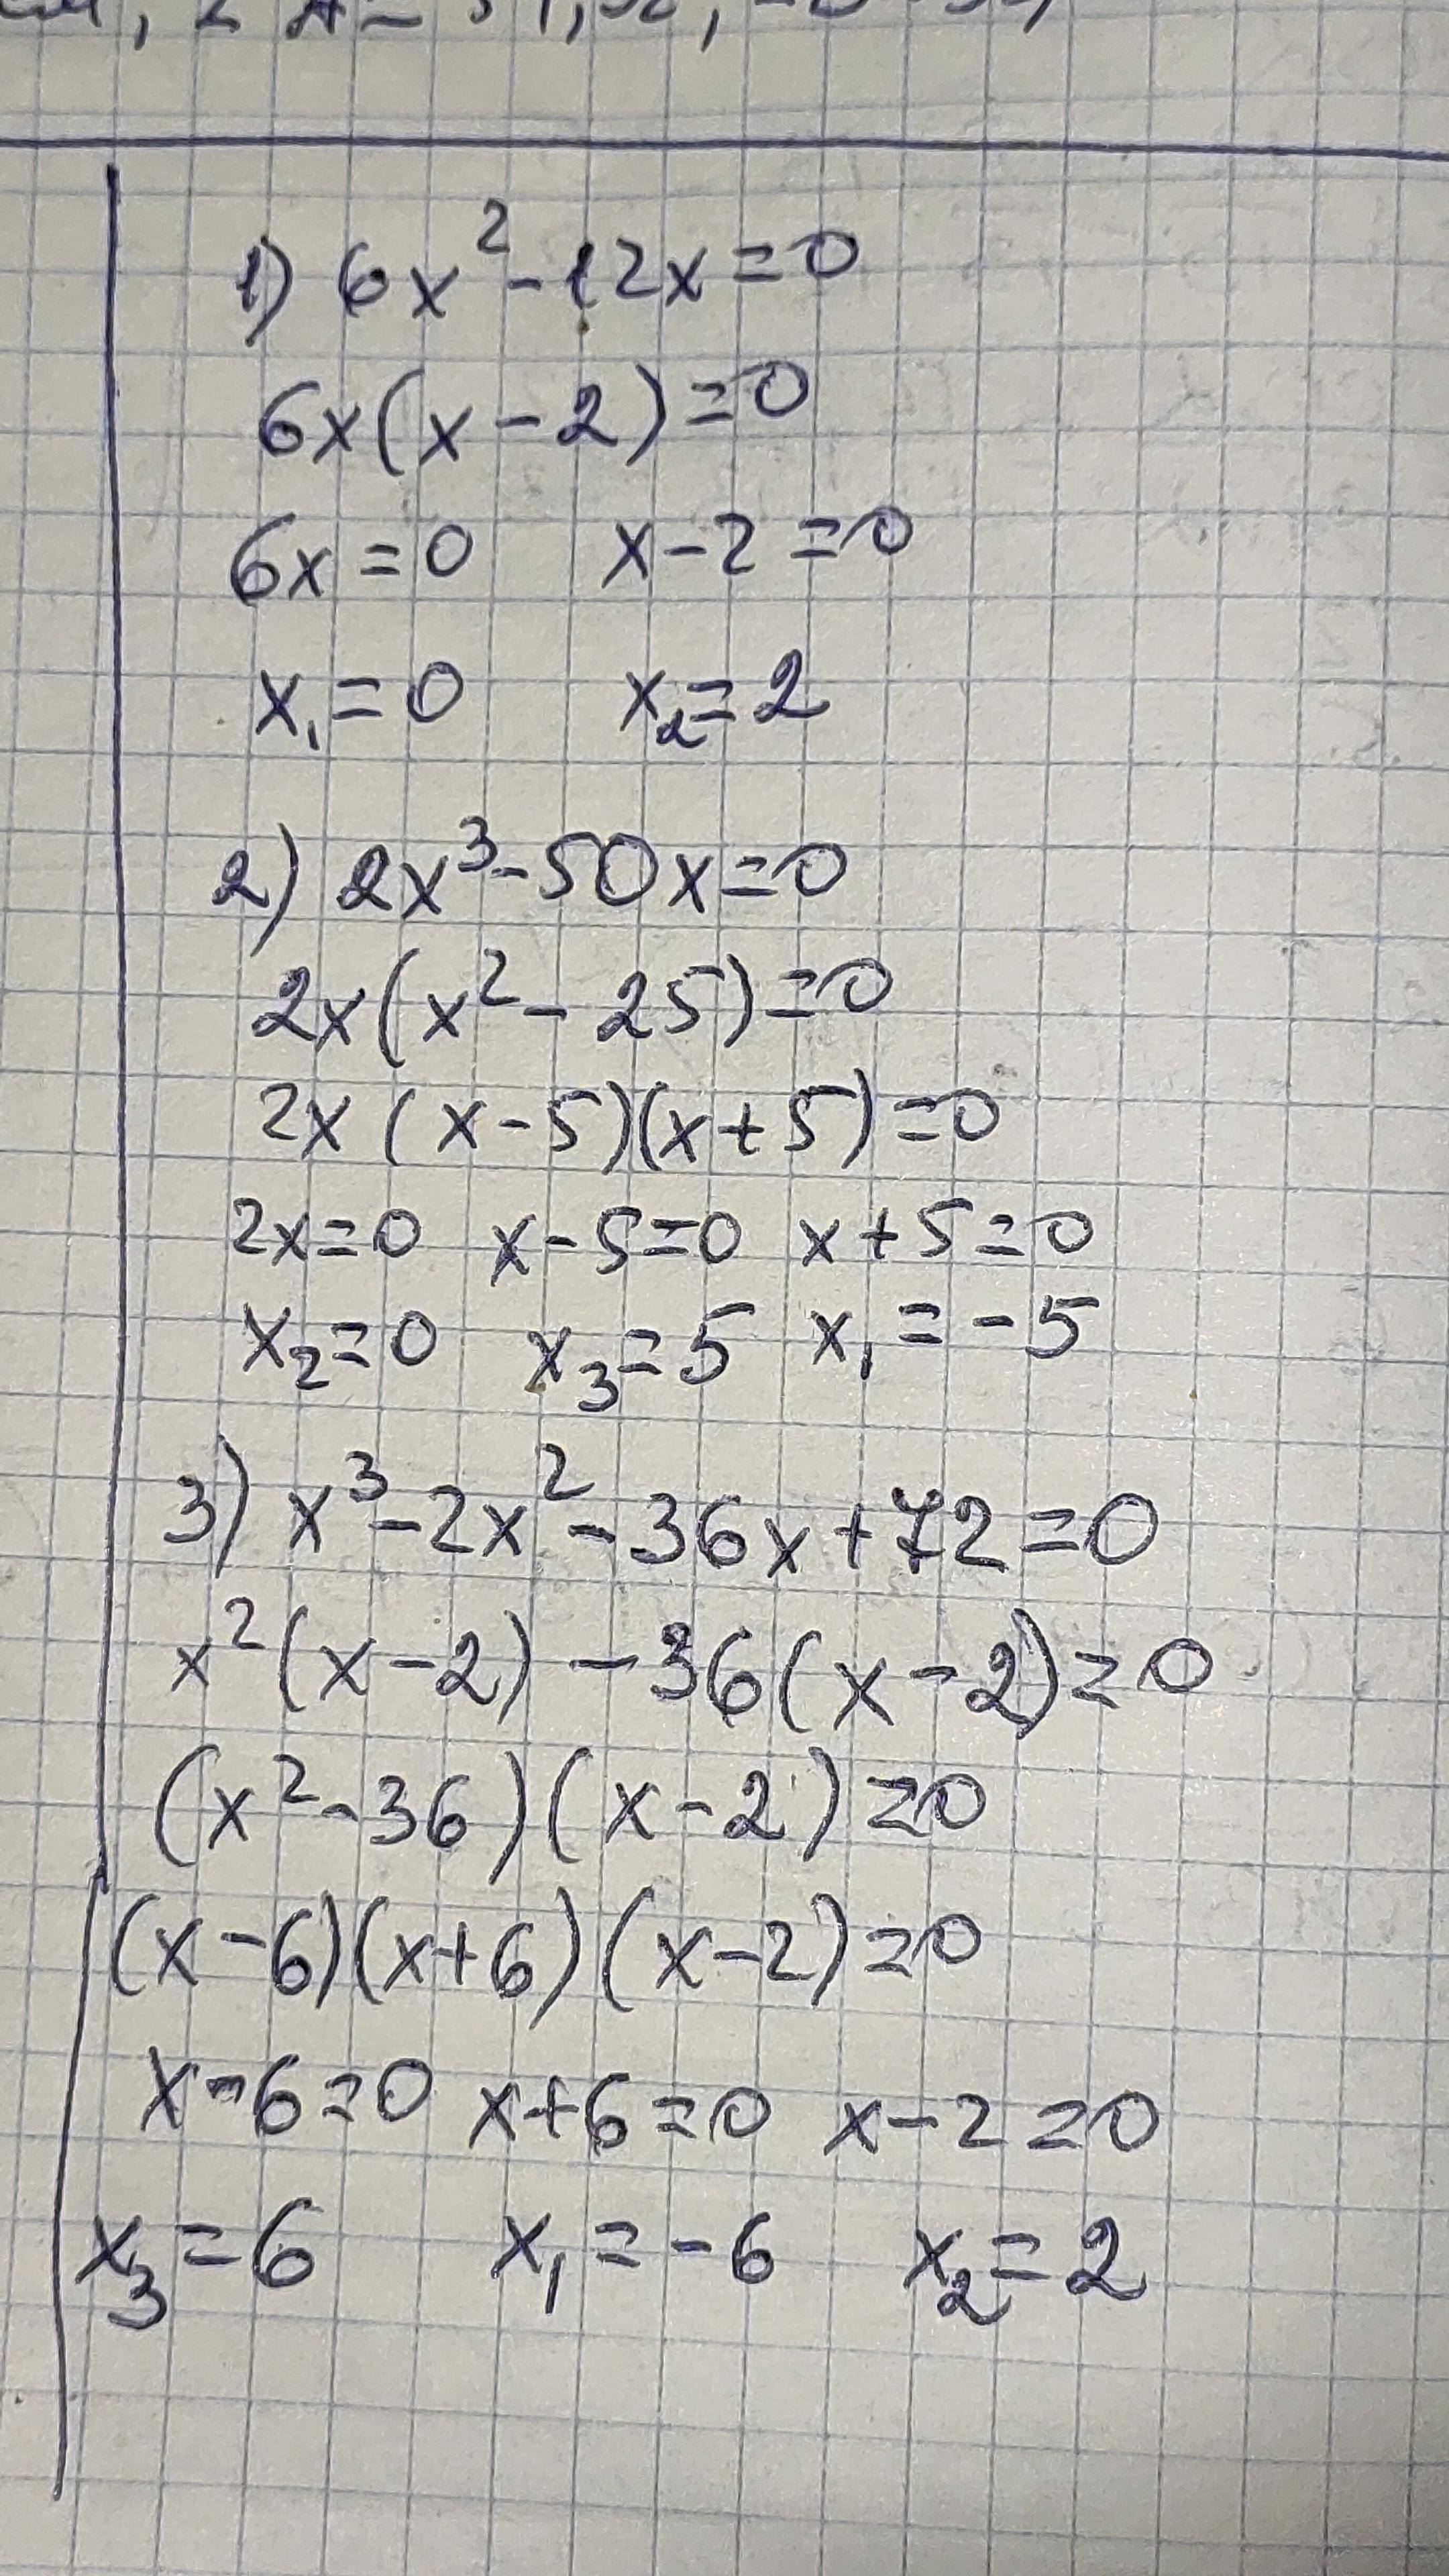 1) 6x²-12x=0
6x(x-2)=0
6x=0 x-2=0
x₁=0 x₂=2
2) 2x³-50x=0
2x(x²-25)=0
2x(x-5)(x+5)=0
2x=0 x-5=0 x+5=0
x₂=0 x₃=5 x₁=-5
3) x³-2x²-36x+72=0
x²(x-2)-36(x-2)=0
(x²-36)(x-2)=0
(x-6)(x+6)(x-2)=0
x-6=0 x+6=0 x-2=0
x₃=6 x₁=-6 x₂=2